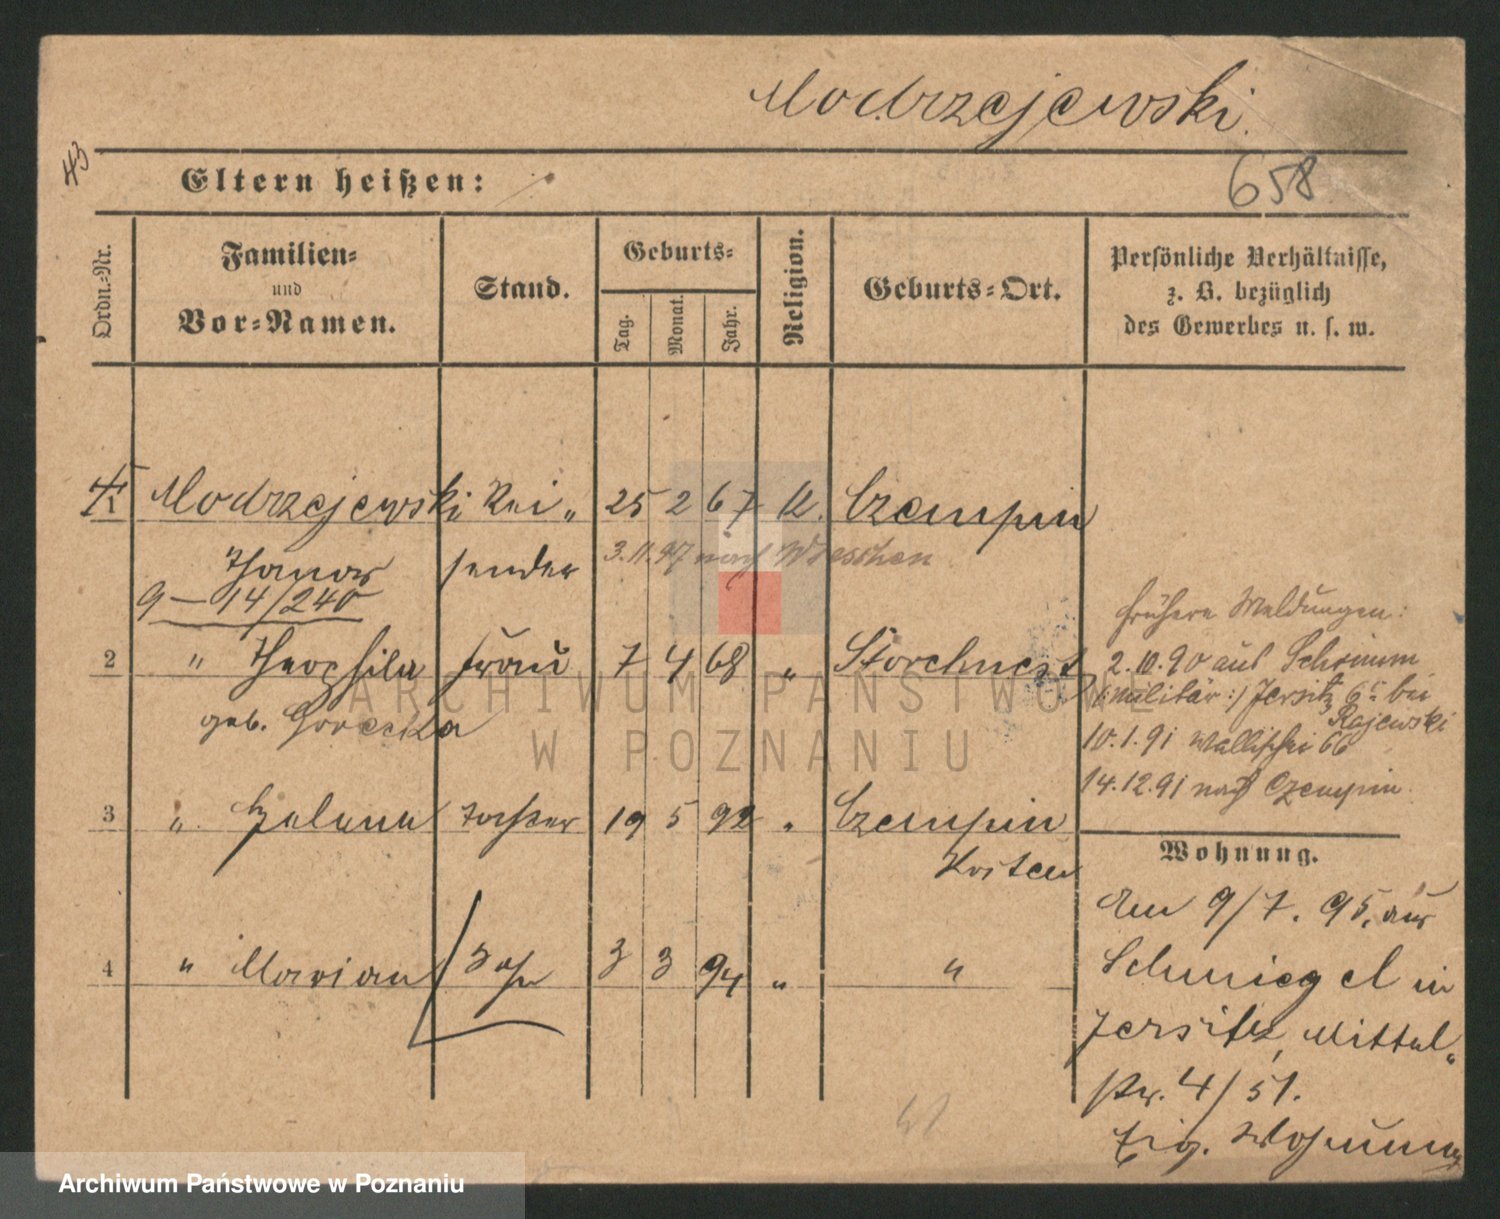 Modrzejewski.
43
Eltern heißen:
658
Ordn.=Nr.
Familien=
und
Vor=Namen.
Stand.
Geburts=
Tag.
Monat.
Jahr.
Religion.
Geburts=Ort.
Persönliche Verhältnisse,
z. B. bezüglich
des Gewerbes u. s. w.
Modrzejewski Rei„ 25 2 67 K. Czempin
Thomas sender 3.11.97 nach Wreschen
9 — 14/240
frühere Meldungen:
2 " Theophila Frau 7 4 68 " Storchnest
geb. Gorecka
2.10.90 aus Schrimm
(:militär:) Jersitz 65 bei
Rajewski
10.1.91 Wallischei 66
14.12.91 nach Czempin.
3 " Helena Tochter 19 5 92 " Czempin
Kosten
Wohnung.
4 " Marian Sohn 3 3 94 " "
Am 9/7. 95, aus
Schmiegel in
Jersitz, Mittel„
str. 4/51.
Eig. Wohnung
ARCHIWUM PAŃSTWOWE
W POZNANIU
Archiwum Państwowe w Poznaniu